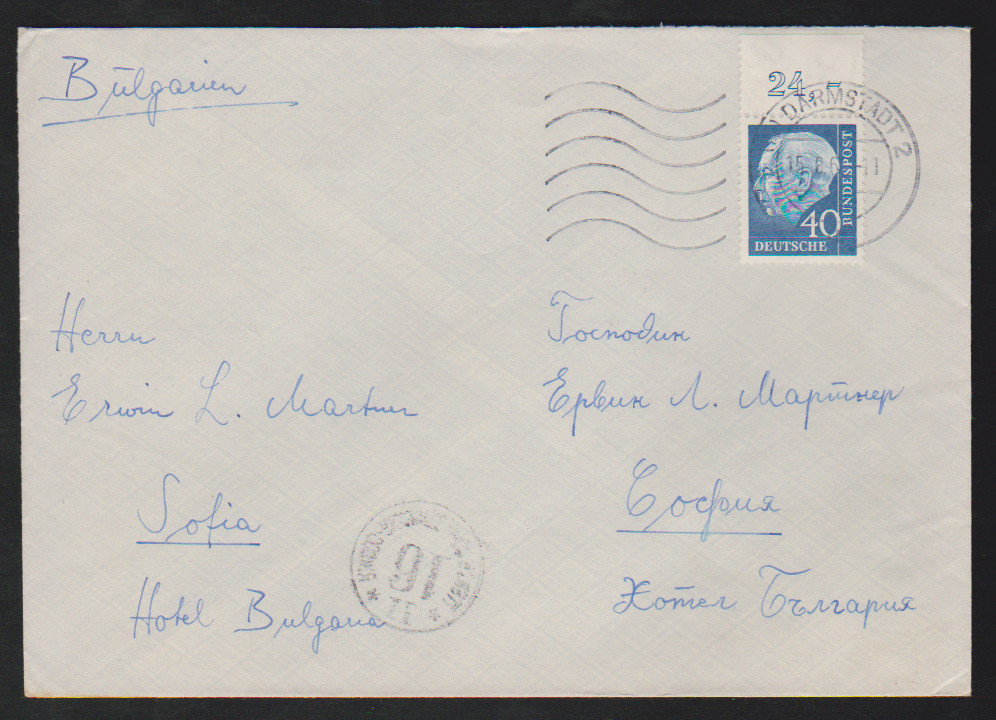 Bulgarien
24,-
DARMSTADT 2
15.8.6 -11
BUNDESPOST
40
DEUTSCHE
Herrn
Erwin L. Martner
Sofia
Hotel Bulgaria
Господин
Ервин Л. Мартнер
София
Хотел България